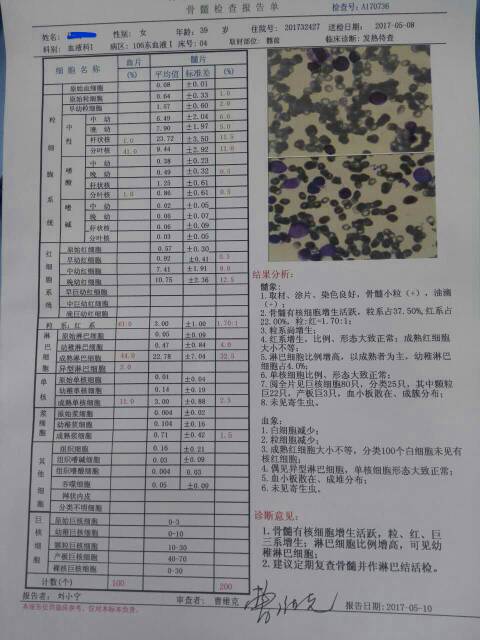 骨髓检查报告单
检查号:A170736
姓名: 性别: 女 年龄: 39 岁 住院号: 201732427 送检日期: 2017-05-08
科别: 血液科I 病区: 106东血液I 床号: 04 取材部位: 髂前 临床诊断: 发热待查
细胞名称 血片 髓片
(%) 平均值 标准差 (%)
粒细胞系统
原始血细胞 0.08 ±0.01
原始粒细胞 0.64 ±0.33 1.0
早幼粒细胞 1.57 ±0.60 2.0
中性 中幼 6.49 ±2.04 6.0
晚幼 7.90 ±1.97 5.0
杆状核 1.0 23.72 ±3.50
分叶核 41.0 9.44 ±2.92
嗜酸 中幼 0.38 ±0.23
晚幼 0.49 ±0.32 0.5
杆状核 1.25 ±0.61
分叶核 1.0 0.86 ±0.61 0.5
嗜碱 中幼 0.02 ±0.05
晚幼 0.06 ±0.07
杆状核 0.06 ±0.09
分叶核 0.03 ±0.05
红细胞系统
原始红细胞 0.57 ±0.30
早幼红细胞 0.92 ±0.41 0.5
中幼红细胞 7.41 ±1.91 9.0
晚幼红细胞 10.75 ±2.36 12.5
早巨幼红细胞
中巨幼红细胞
晚巨幼红细胞
粒系:红系 3.00 ±1.00 1.70:1
淋巴细胞
原始淋巴细胞 0.05 ±0.09
幼稚淋巴细胞 0.47 ±0.84 4.0
成熟淋巴细胞 44.0 22.78 ±7.04 52.5
异型淋巴细胞 2.0
单核
原始单核细胞 0.01 ±0.04
幼稚单核细胞 0.14 ±0.19
成熟单核细胞 11.0 3.00 ±0.88 2.5
浆细胞
原始浆细胞 0.004 ±0.02
幼稚浆细胞 0.104 ±0.16
成熟浆细胞 0.71 ±0.42 1.5
其他细胞
组织细胞 0.16 ±0.21
组织嗜碱细胞 0.03 ±0.09
组织嗜酸细胞 0.004 0.03
吞噬细胞 0.05 ±0.09
网状内皮
分类不明细胞
巨核细胞
原始巨核细胞 0-3
幼稚巨核细胞 0-10
颗粒巨核细胞 10-30
产板巨核细胞 40-70
裸核巨核细胞 0-30
计数(个) 100 200
结果分析:
髓象:
1.取材、涂片、染色良好,骨髓小粒(+),油滴
(-);
2.骨髓有核细胞增生活跃,粒系占37.50%,红系占
22.00%, 粒:红=1.70:1;
3.粒系尚增生;
4.红系增生,比例、形态大致正常;成熟红细胞
大小不等;
5.淋巴细胞比例增高,以成熟者为主,幼稚淋巴细
胞占4.0%;
6.单核细胞比例、形态大致正常;
7.阅全片见巨核细胞80只,分类25只,其中颗粒
巨22只,产板巨3只,血小板散在、成簇分布;
8.未见寄生虫。
血象:
1.白细胞减少;
2.粒细胞减少;
3.成熟红细胞大小不等,分类100个白细胞未见有
核红细胞;
4.偶见异型淋巴细胞,单核细胞形态大致正常;
5.血小板散在、成堆分布;
6.未见寄生虫。
诊断意见:
1.骨髓有核细胞增生活跃,粒、红、巨
三系增生;淋巴细胞比例增高,可见幼
稚淋巴细胞;
2.建议定期复查骨髓并作淋巴结活检。
报告者: 刘小宁 审查者: 曹维克 报告日期:2017-05-10